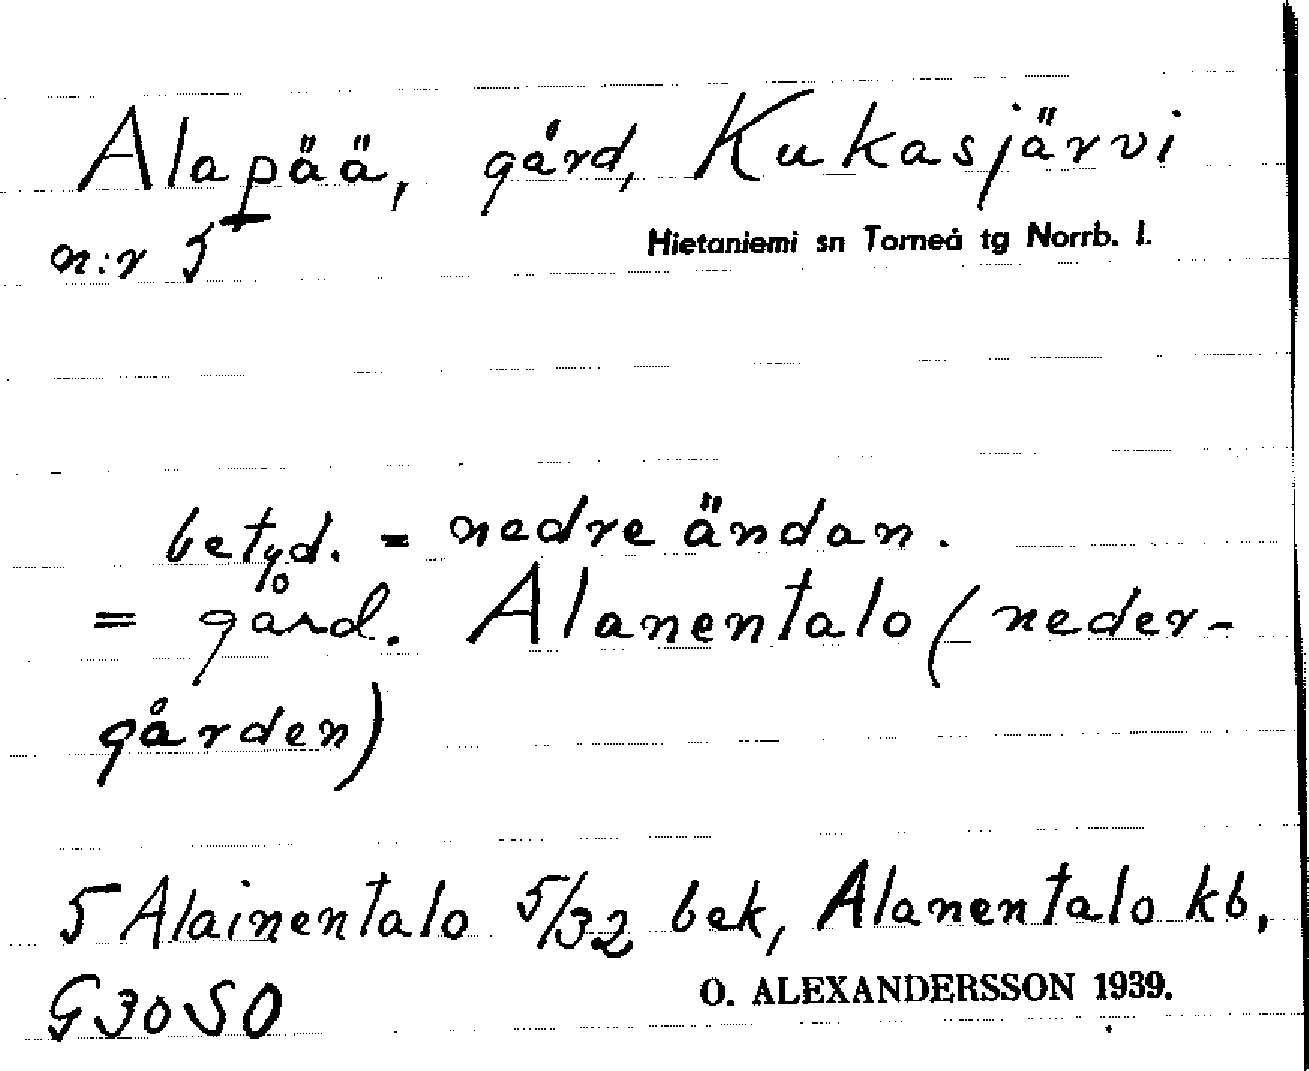 Alapää, gård, Kukasjärvi
n:r 5
Hietaniemi sn Torneå tg Norrb. l.
betyd. = nedre ändan.
= gård. Alanentalo (neder-
gården)
5 Alainentalo 5/32 bek, Alanentalo kb,
G 30 SO
O. ALEXANDERSSON 1939.